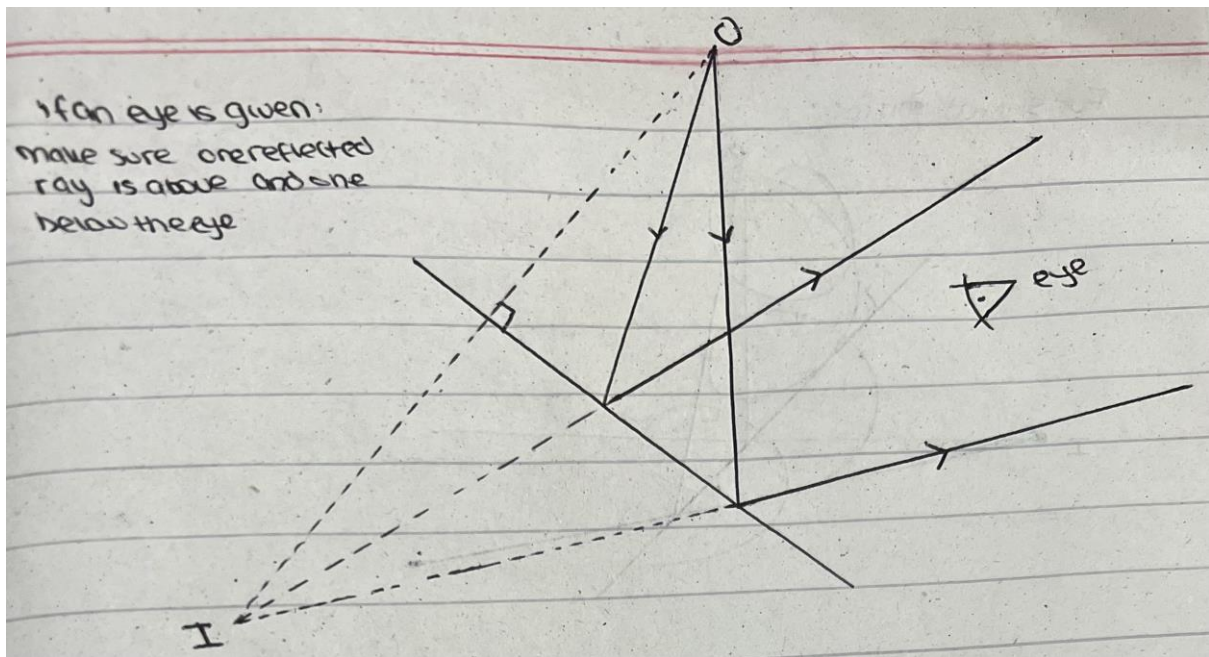 O
If an eye is given:
make sure one reflected
ray is above and one
below the eye
eye
I